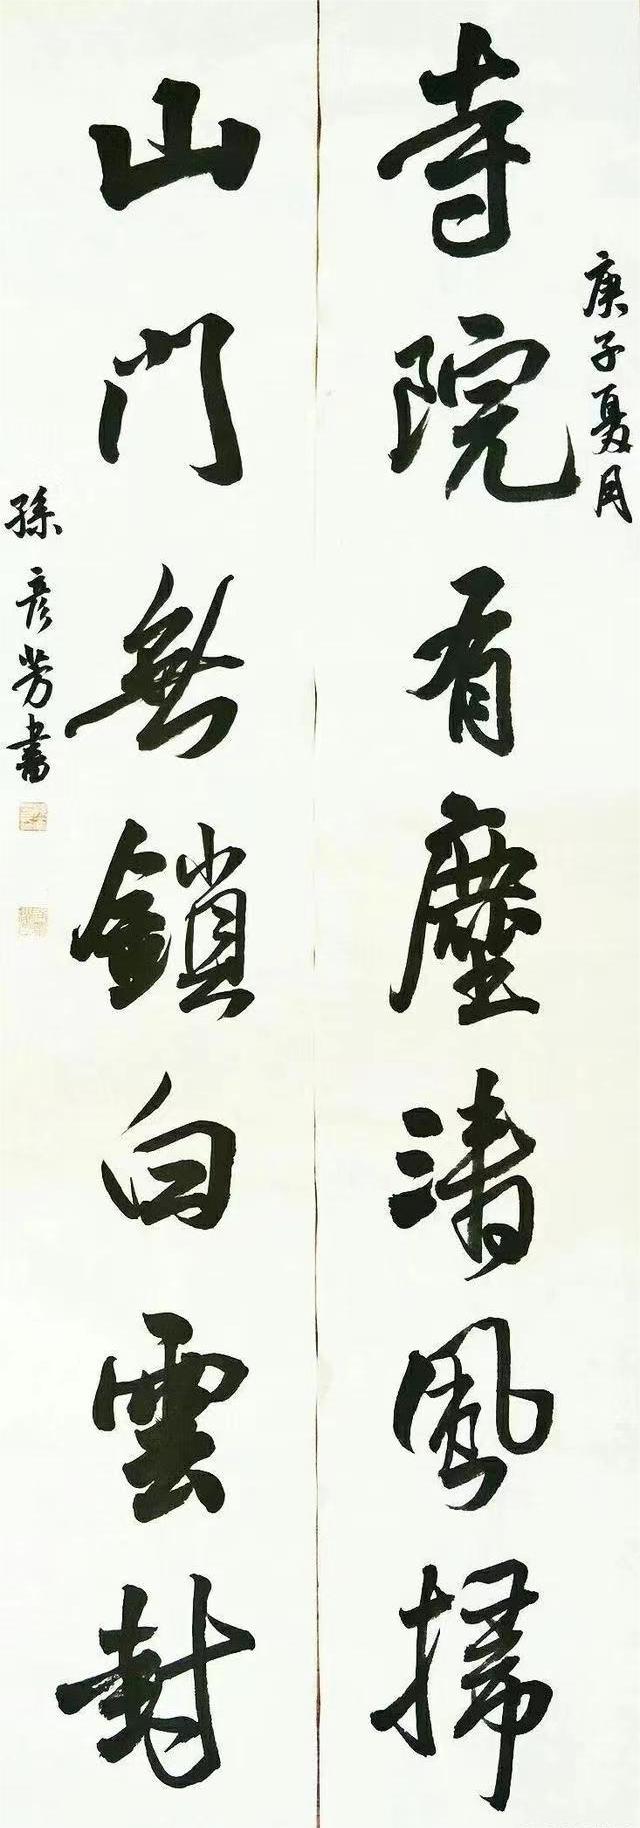 庚子夏月
寺院有塵清風掃
山門無鎖白雲封
孫彦芳書